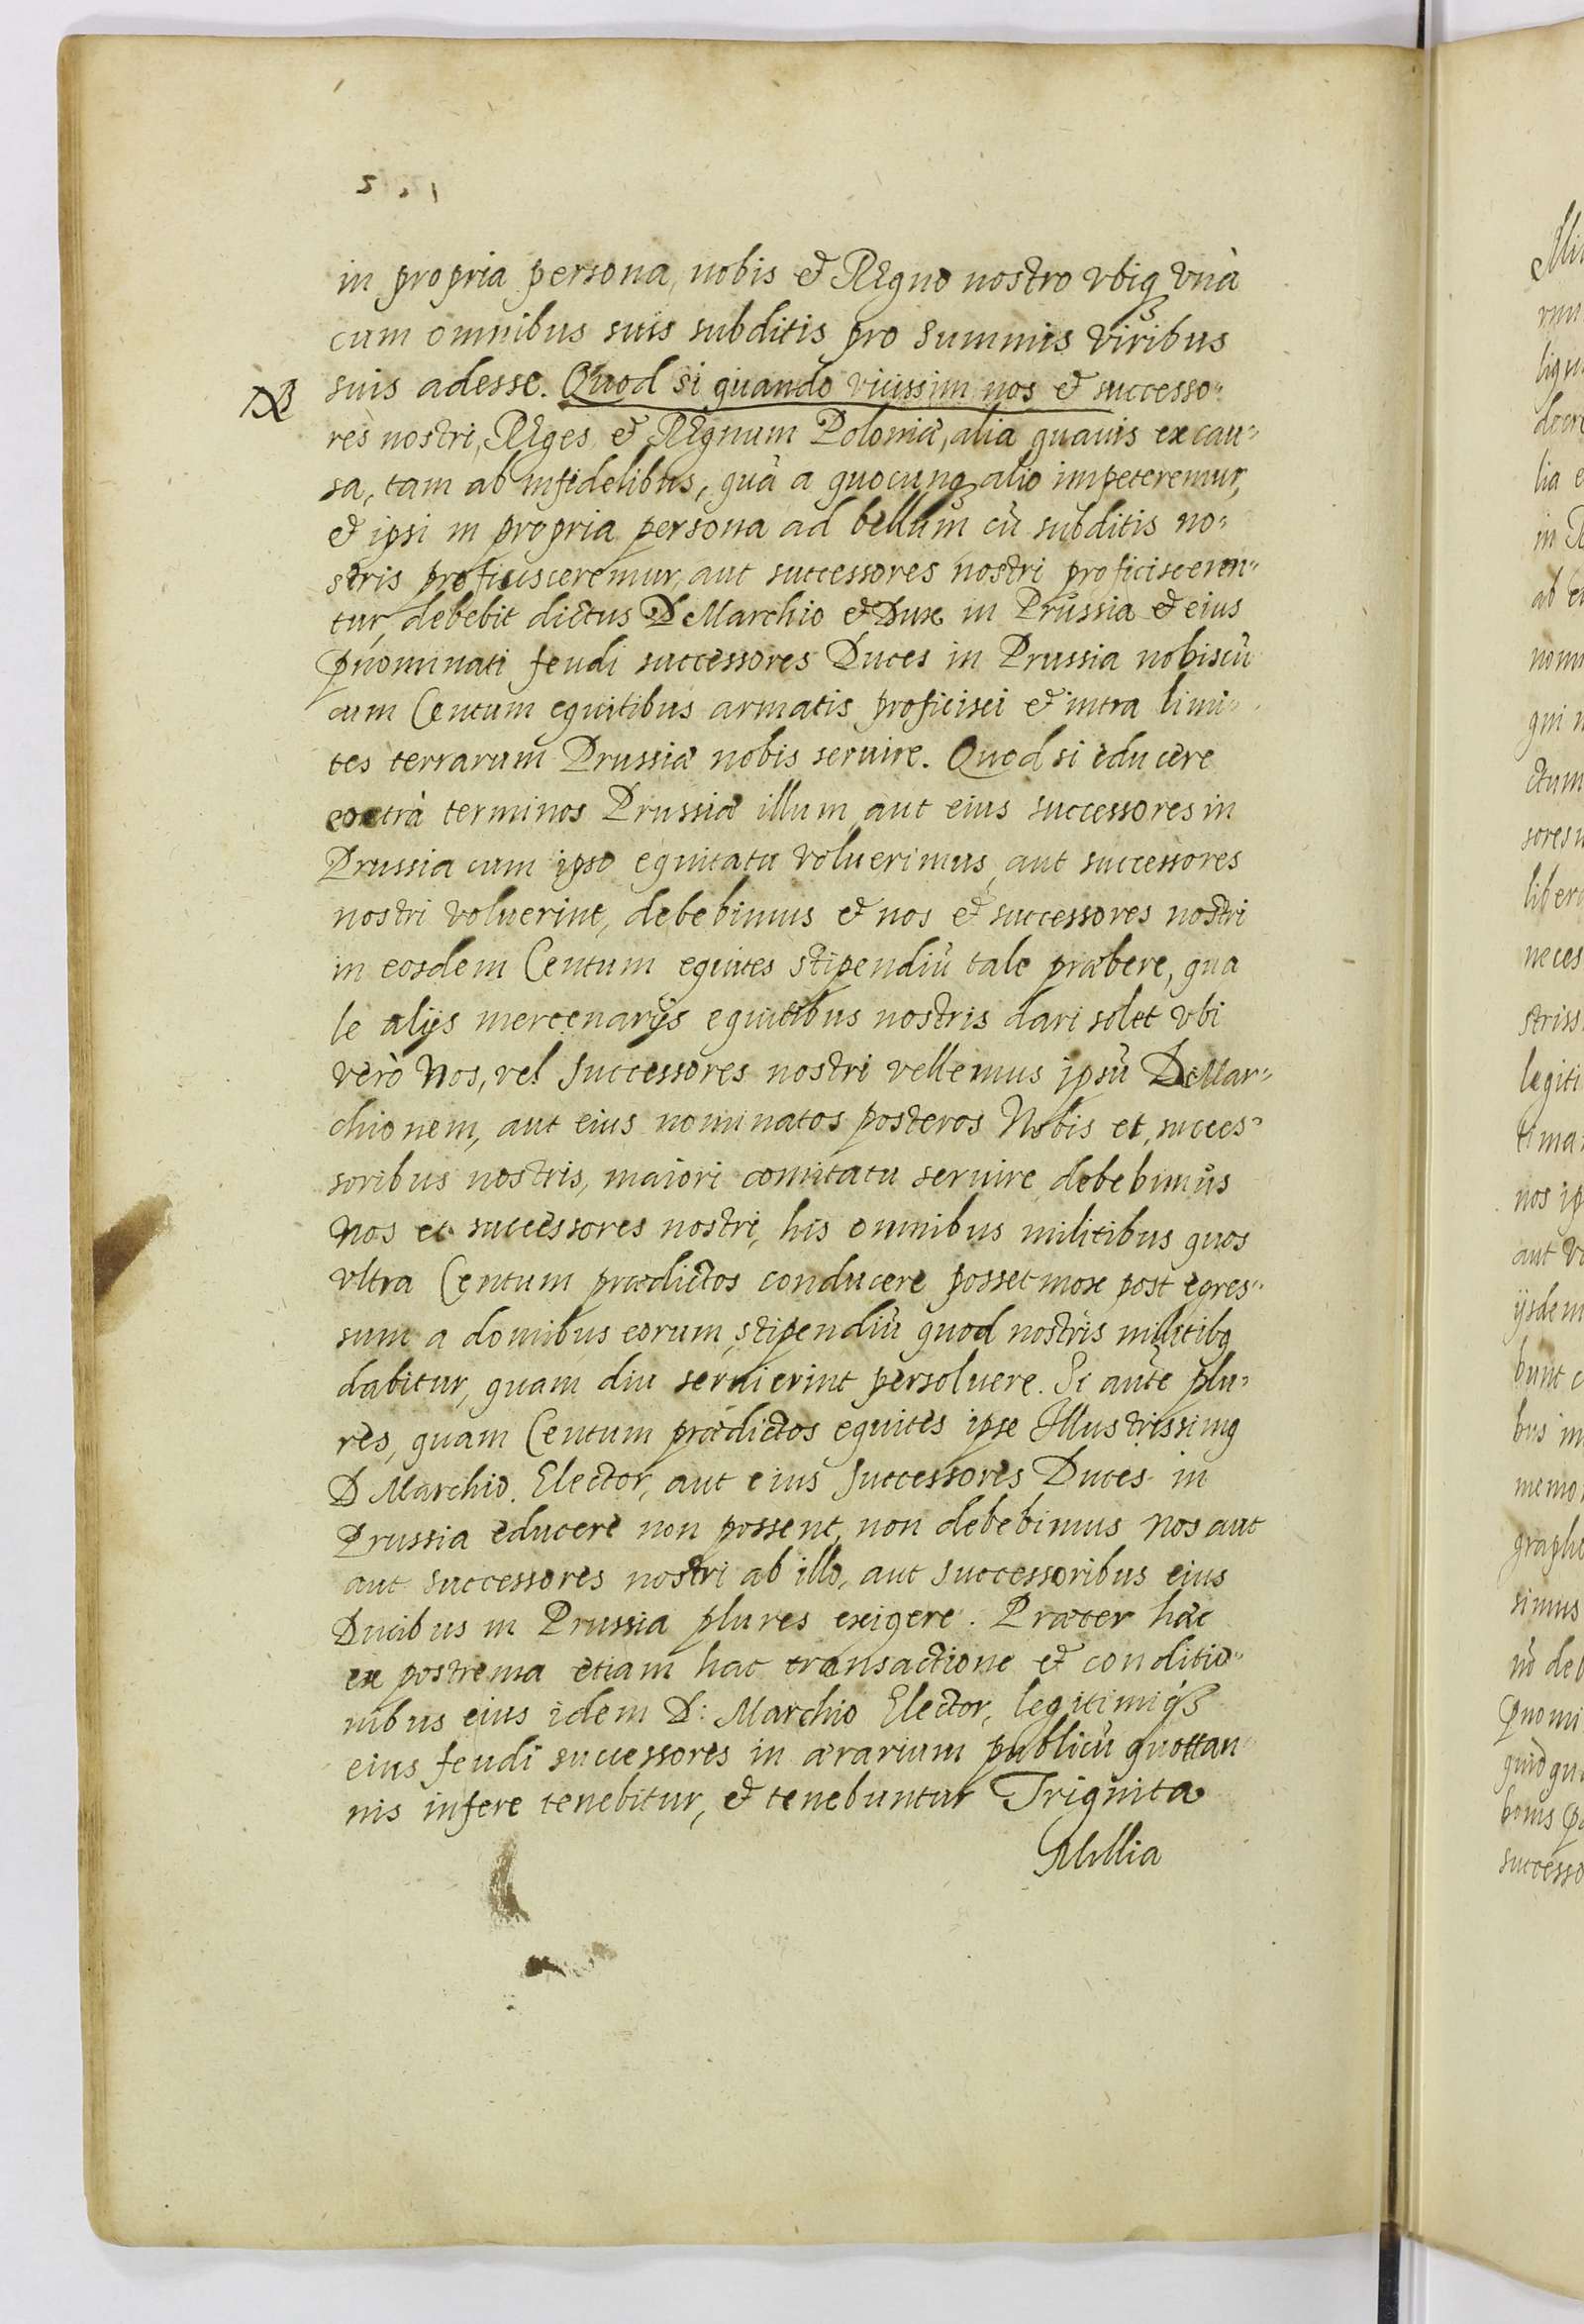 in propria persona, nobis et REgno nostro vbiq vnà
cum omnibus suis subditis pro summis viribus
NB suis adesse. Quod si quando vicissim nos et successo=
res nostri, REges et REgnum Poloniæ, alia quauis ex cau=
sa, tam ab infidelibus, quā a quocunq alio impeteremur,
et ipsi in propria persona ad bellum cū subditis no=
stris proficisceremur, aut successores nostri proficisceren=
tur, debebit dictus D Marchio et Dux in Prussia et eius
pnominati feudi successores Duces in Prussia nobiscū
cum Centum equitibus armatis proficisci et intra limi=
tes terrarum Prussiæ nobis seruire. Quod si educere
extrà terminos Prussiæ illum, aut eius successores in
Prussia cum ipso equitatu voluerimus, aut successores
nostri voluerint, debebimus et nos et successores nostri
in eosdem Centum equites stipendiū tale præbere, qua
le alijs mercenarijs equitibus nostris dari solet vbi
verò Nos, vel successores nostri vellemus ipsū D Mar=
chionem, aut eius nominatos posteros Nobis et, succes=
soribus nostris, maiori comitatu seruire debebimus
Nos et successores nostri, his omnibus militibus quos
vltra Centum prædictos conducere posset mox post egres=
sum a domibus eorum, stipendiū quod nostris militibq
dabitur, quam diu seruierint persoluere. Si autē plu=
res, quam Centum prædictos equites ipse Illustrissimq
D Marchio. Elector, aut eius successores Duces in
Prussia educere non possent, non debebimus nos aut
aut successores nostri ab illo, aut successoribus eius
Ducibus in Prussia plures exigere. Præter hæc
ex postrema etiam hac transactione et conditio=
nibus eius idem D: Marchio Elector, legitimiq
eius feudi successores in ærarium publicū quottan=
nis infere tenebitur, et tenebuntur Triginta
Millia